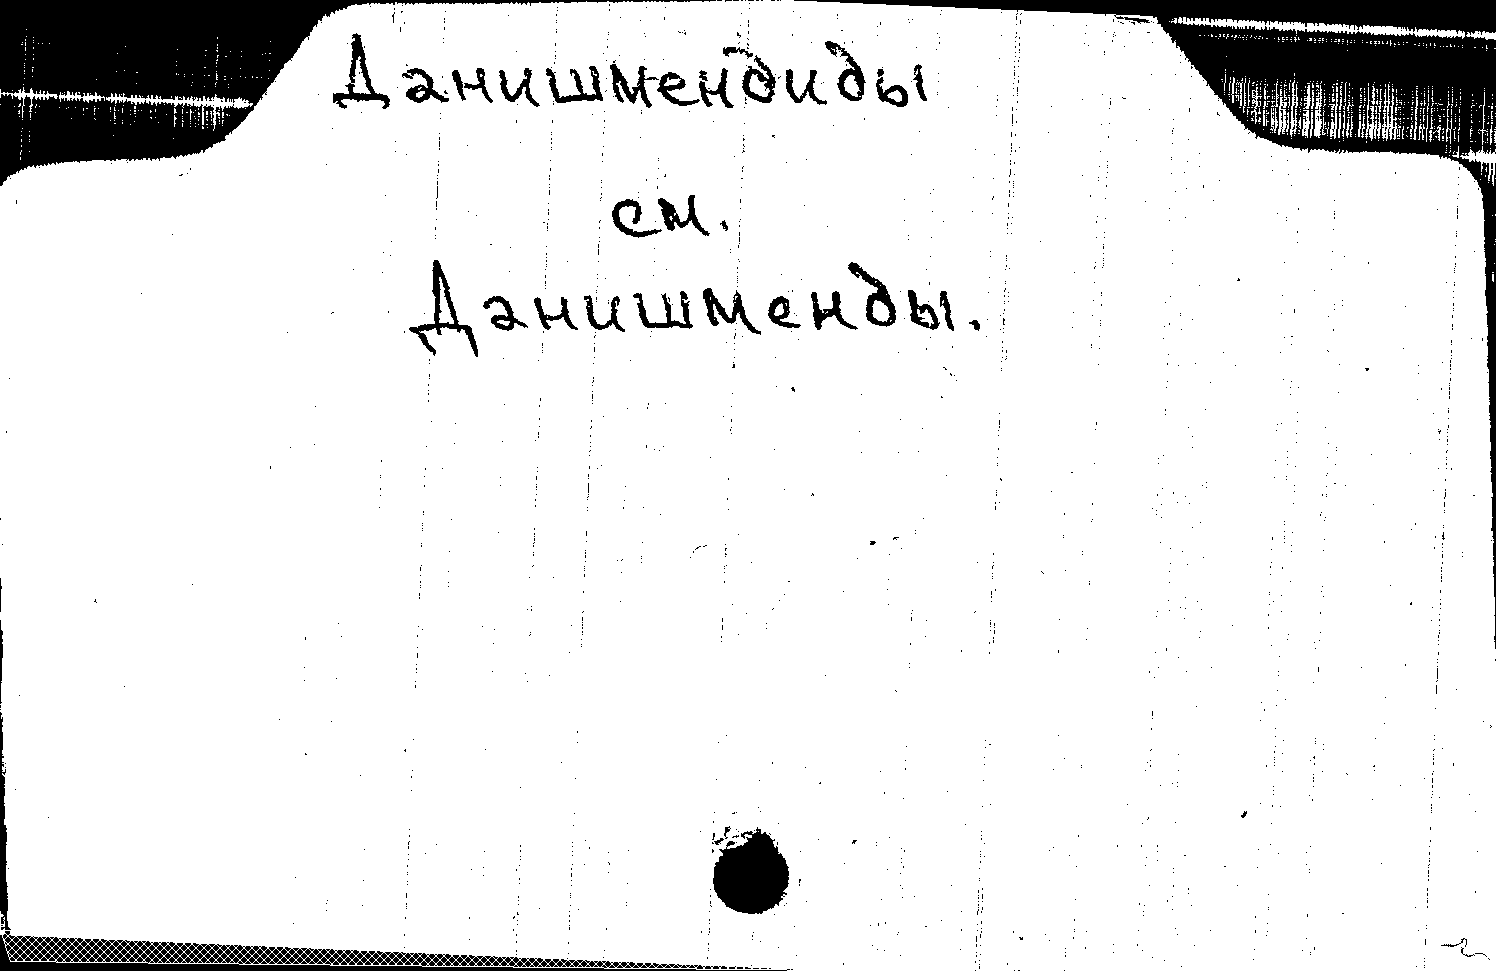 Данишмендиды
см.
Данишменды.